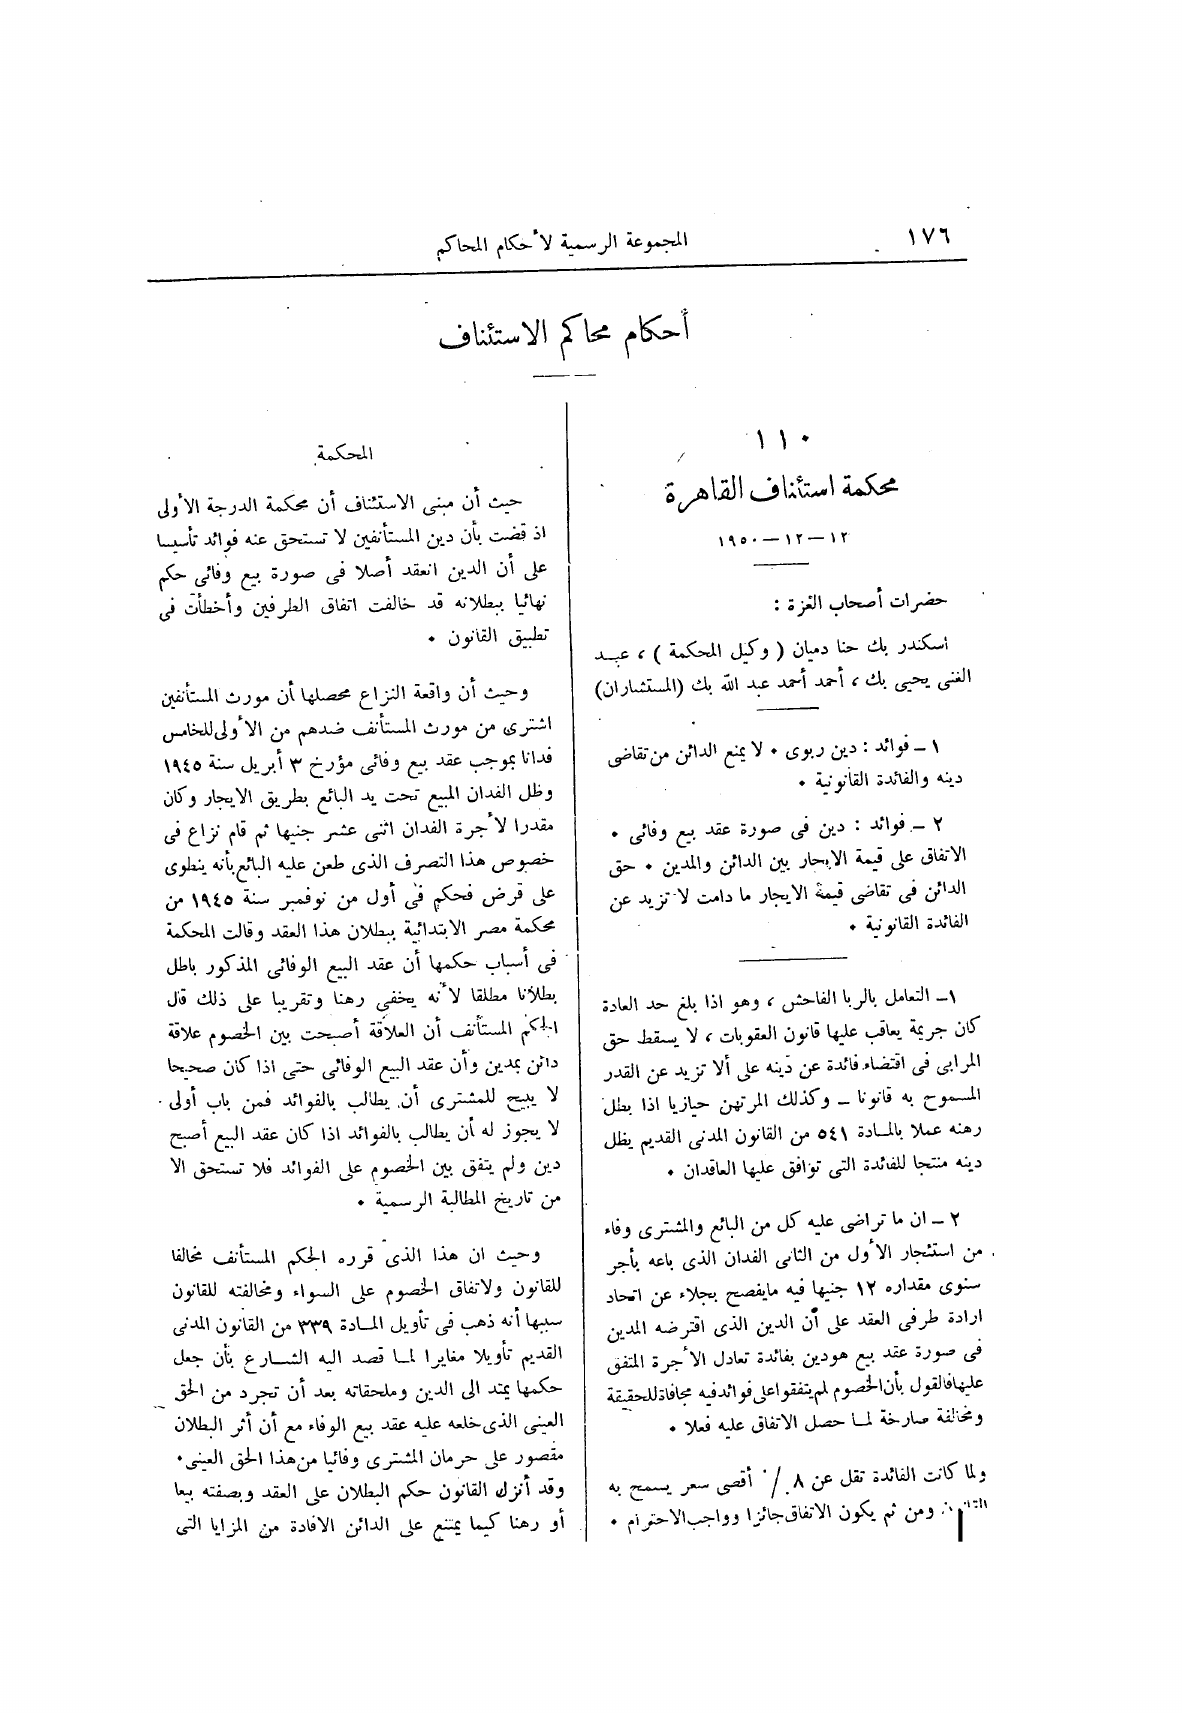 ١٧٦
المجموعة الرسمية لأحكام المحاكم
أحكام محاكم الاستئناف
١١٠
محكمة استئناف القاهرة
١٢—١٢—١٩٥٠
حضرات أصحاب العزة :
أسكندر بك حنا دميان ( وكيل المحكمة ) ، عبد
الغنى يحيى بك ، أحمد أحمد عبد الله بك (المستشاران)
١ — فوائد : دين ربوى . لا يمنع الدائن من تقاضى
دينه والفائدة القانونية .
٢ — فوائد : دين فى صورة عقد بيع وفائى .
الاتفاق على قيمة الايجار بين الدائن والمدين . حق
الدائن فى تقاضى قيمة الايجار ما دامت لا تزيد عن
الفائدة القانونية .
١— التعامل بالربا الفاحش ، وهو اذا بلغ حد العادة
كان جريمة يعاقب عليها قانون العقوبات ، لا يسقط حق
المرابى فى اقتضاء فائدة عن دينه على ألا تزيد عن القدر
المسموح به قانونا — وكذلك المرتهن حيازيا اذا بطل
رهنه عملا بالمادة ٥٤١ من القانون المدنى القديم يظل
دينه منتجا للفائدة التى توافق عليها العاقدان .
٢ — ان ما تراضى عليه كل من البائع والمشترى وفاء
من استئجار الأول من الثانى الفدان الذى باعه بأجر
سنوى مقداره ١٢ جنيها فيه مايفصح بجلاء عن اتحاد
ارادة طرفى العقد على أن الدين الذى اقترضه المدين
فى صورة عقد بيع هودين بفائدة تعادل الأجرة المتفق
عليها فالقول بأن الخصوم لم يتفقوا على فوائد فيه مجافاة للحقيقة
ومخالفة صارخة لما حصل الاتفاق عليه فعلا .
ولما كانت الفائدة تقل عن ٨ ٪ أقصى سعر يسمح به
ومن ثم يكون الاتفاق جائزا وواجب الاحترام .
المحكمة
حيث أن مبنى الاستئناف أن محكمة الدرجة الأولى
اذ قضت بأن دين المستأنفين لا تستحق عنه فوائد تأسيسا
على أن الدين انعقد أصلا فى صورة بيع وفائى حكم
نهائيا ببطلانه قد خالفت اتفاق الطرفين وأخطأت فى
تطبيق القانون .
وحيث أن واقعة النزاع محصلها أن مورث المستأنفين
اشترى من مورث المستأنف ضدهم من الأولى للخامس
فدانا بموجب عقد بيع وفائى مؤرخ ٣ أبريل سنة ١٩٤٥
وظل الفدان المبيع تحت يد البائع بطريق الايجار وكان
مقدرا لأجرة الفدان اثنى عشر جنيها ثم قام نزاع فى
خصوص هذا التصرف الذى طعن عليه البائع بأنه ينطوى
على قرض فحكم فى أول من نوفمبر سنة ١٩٤٥ من
محكمة مصر الابتدائية ببطلان هذا العقد وقالت المحكمة
فى أسباب حكمها أن عقد البيع الوفائى المذكور باطل
بطلانا مطلقا لأنه يخفى رهنا وتقريبا على ذلك قال
الحكم المستأنف أن العلاقة أصبحت بين الخصوم علاقة
دائن بمدين وأن عقد البيع الوفائى حتى اذا كان صحيحا
لا يبيح للمشترى أن يطالب بالفوائد فمن باب أولى
لا يجوز له أن يطالب بالفوائد اذا كان عقد البيع أصبح
دين ولم يتفق بين الخصوم على الفوائد فلا تستحق الا
من تاريخ المطالبة الرسمية .
وحيث ان هذا الذى قرره الحكم المستأنف مخالفا
للقانون ولاتفاق الخصوم على السواء ومخالفته للقانون
سببها أنه ذهب فى تأويل المادة ٣٣٩ من القانون المدنى
القديم تأويلا مغايرا لما قصد اليه الشارع بأن جعل
حكمها يمتد الى الدين وملحقاته بعد أن تجرد من الحق
العينى الذى خلعه عليه عقد بيع الوفاء مع أن أثر البطلان
مقصور على حرمان المشترى وفائيا من هذا الحق العينى .
وقد أنزل القانون حكم البطلان على العقد وبصفته بيعا
أو رهنا كيما يمتنع على الدائن الافادة من المزايا التى